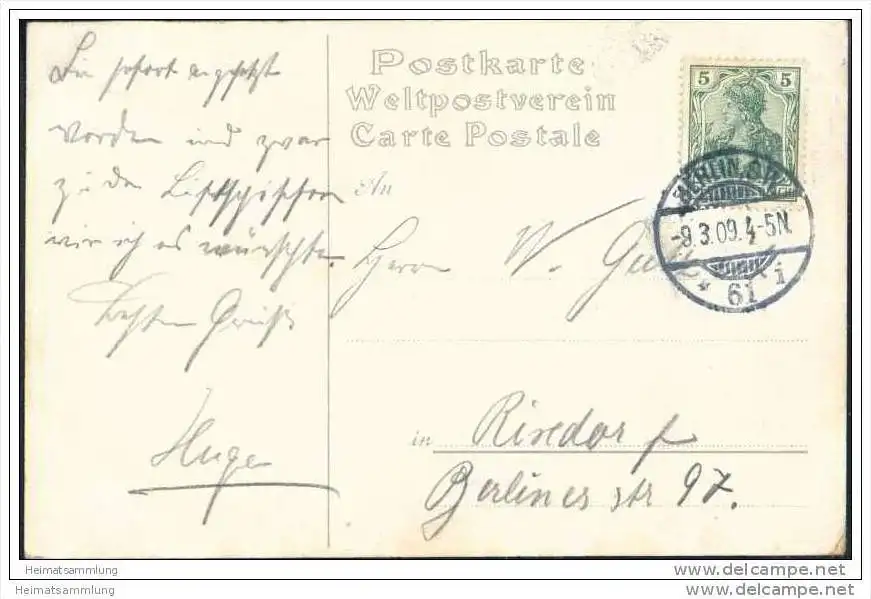 Bin sofort angesetzt
worden und zwar
zu den Luftschiffern
wie ich es wünschte.
Besten Gruß
Hugo
Postkarte
Weltpostverein
Carte Postale
An
Herrn W.
in Rixdorf
Berlinerstr 97.
5 5
BERLIN. S.W.
-9.3.09.4-5N.
* 61 i
Heimatsammlung
Heimatsammlung
www.delcampe.net
www.delcampe.net